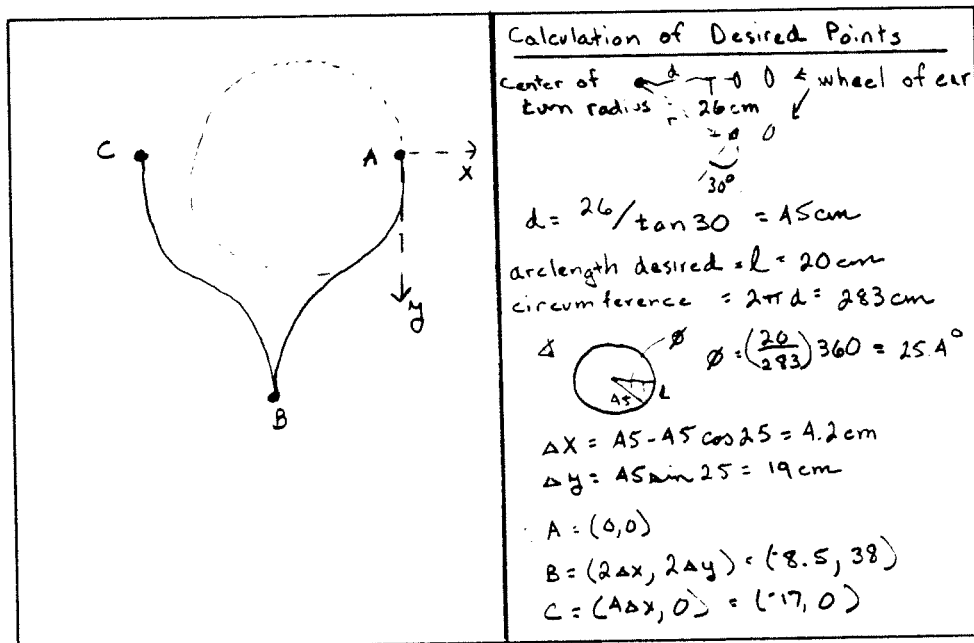 C
A
x
y
B
Calculation of Desired Points
center of
turn radius
d
r
26cm
30°
wheel of car
d = 26/tan 30 = 45cm
arclength desired = l = 20cm
circumference = 2πd = 283cm
∅
45
l
∅ = (20/283) 360 = 25.4°
Δx = 45 - 45 cos 25 = 4.2cm
Δy = 45 sin 25 = 19cm
A = (0,0)
B = (2Δx, 2Δy) = (-8.5, 38)
C = (4Δx, 0) = (-17, 0)